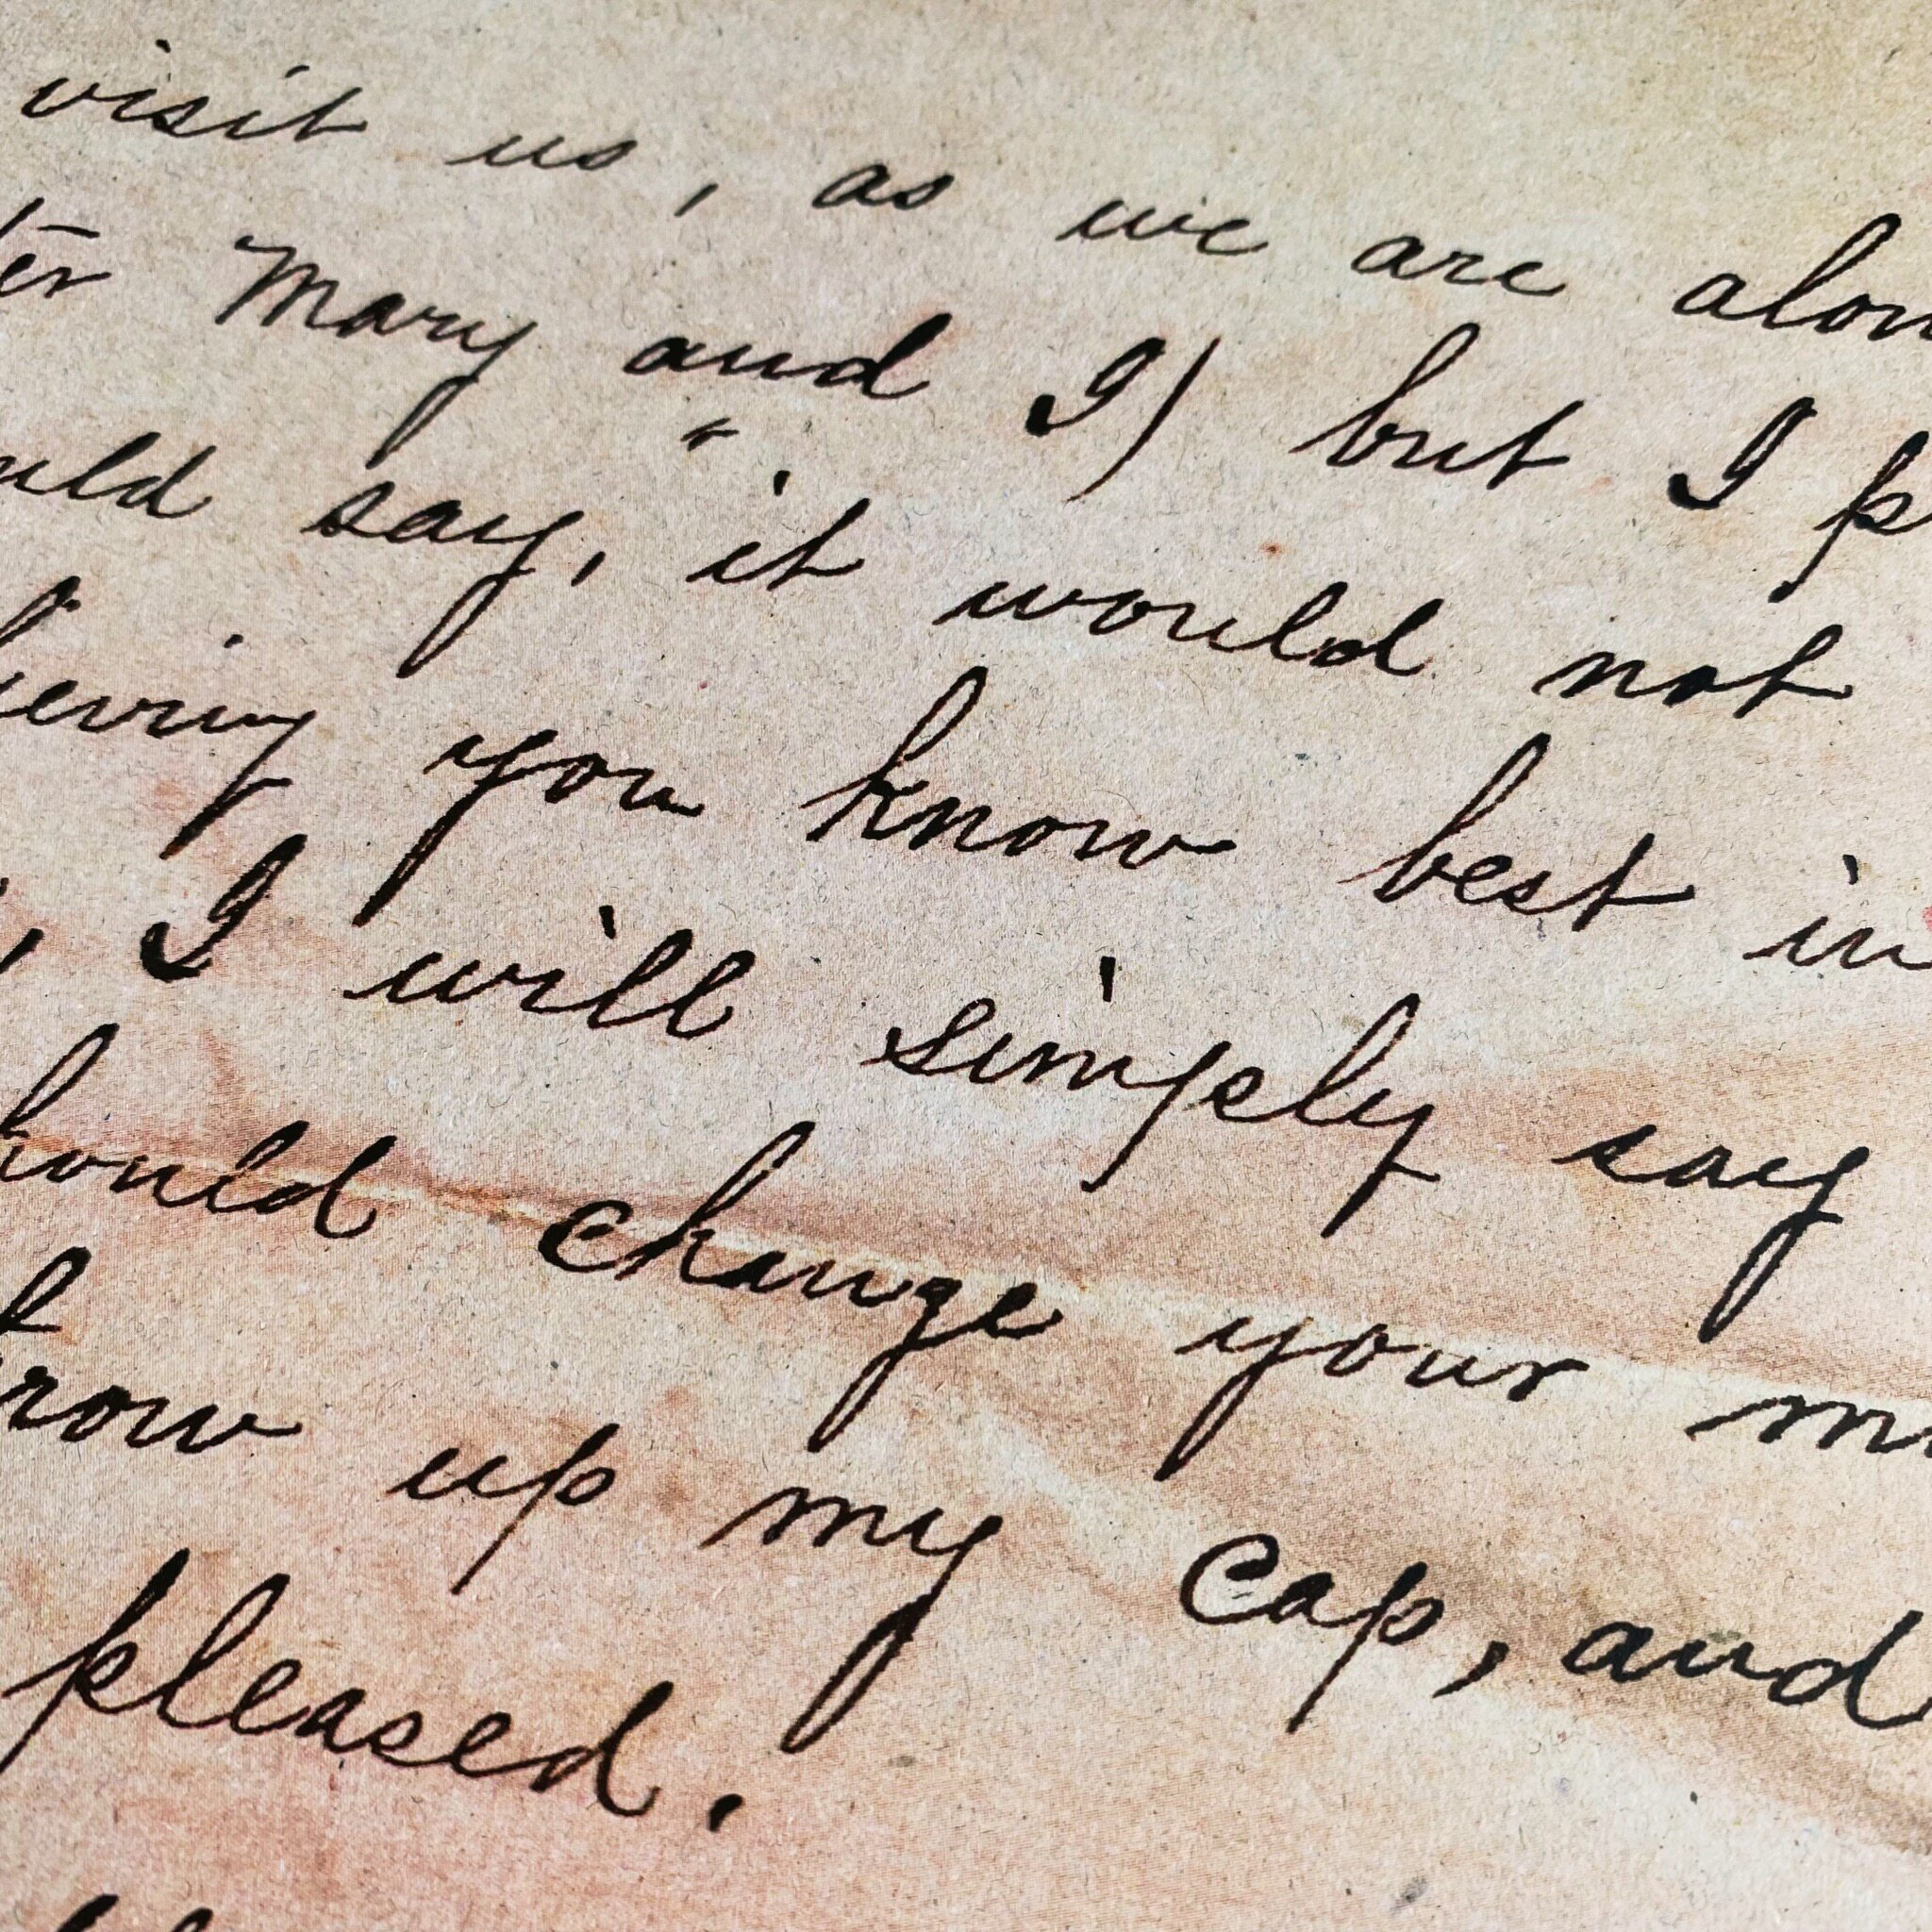 visit us, as we are alon
ter Mary and I) but I p
uld say, "it would not
ieving you know best in
, I will simply say
hould change your m
row up my cap, and
pleased.